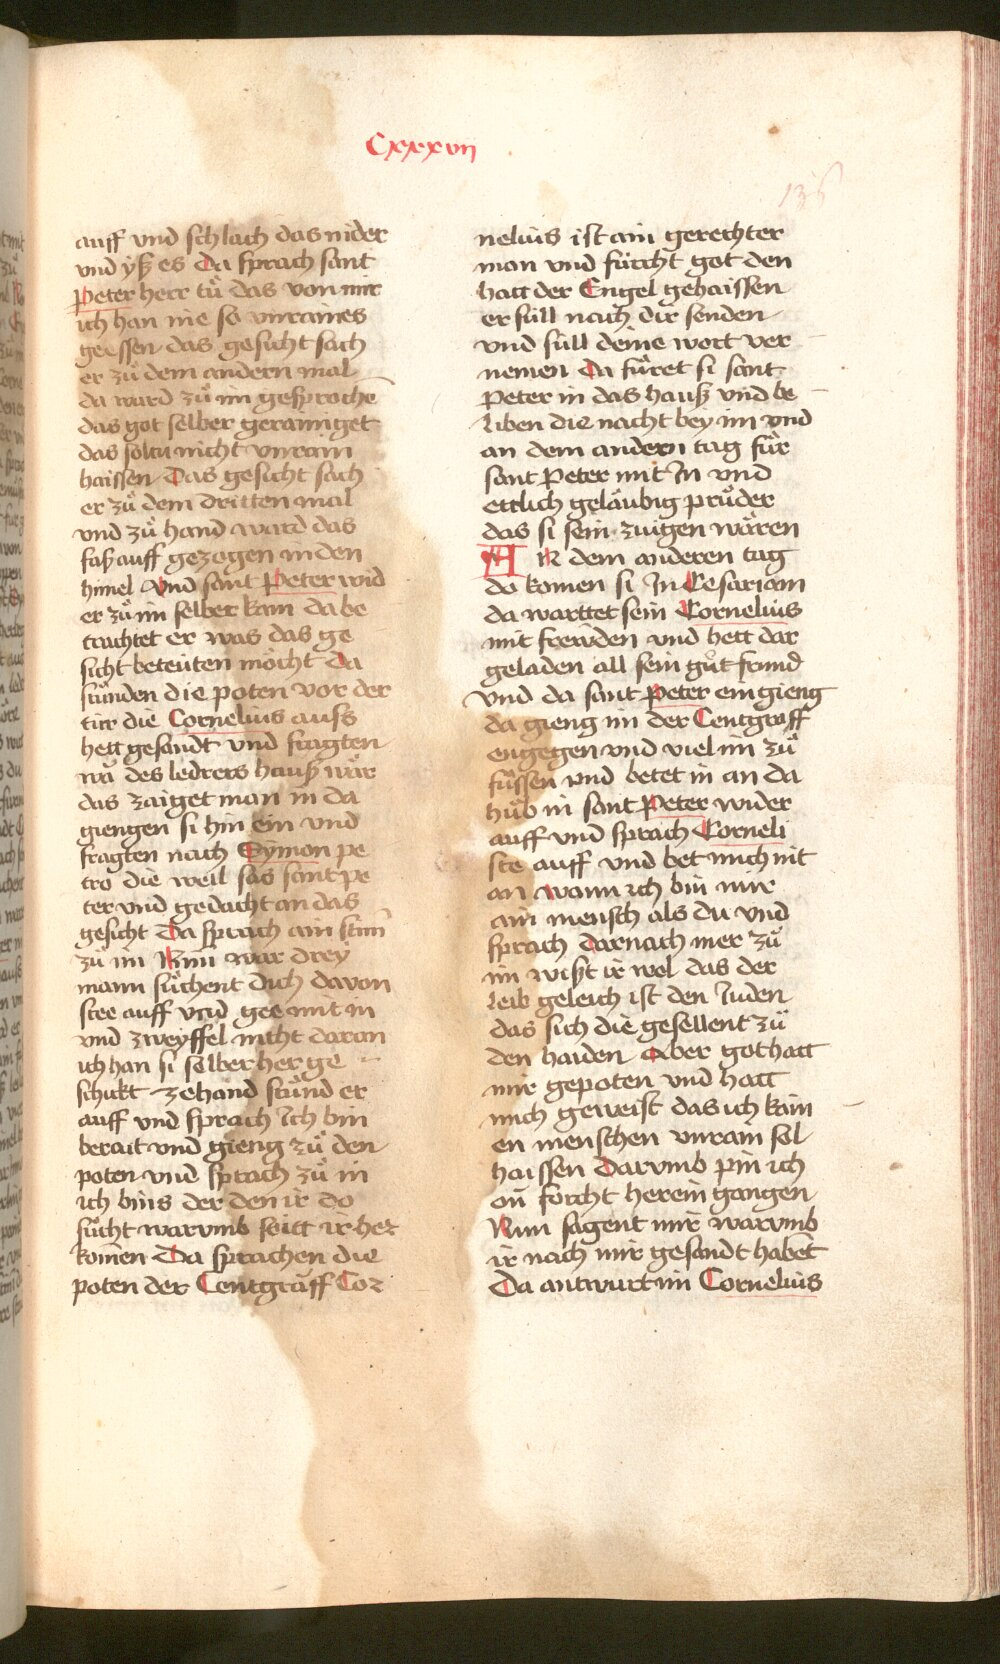 Cxxxvii
136
auff vnd schlach das nider
vnd yß es Da sprach sant
Peter herr tů das von mir
ich han nie so vnraines
geessen das gesicht sach
er zů dem andern mal
da ward zů im gesprochē
das got selber gerainiget
das soltu nicht vnrain
haissen Das gesicht sach
er zů dem dritten mal
vnd zů hand ward das
faß auff gezogen in den
himel Vnd sant Peter wid
er zů im selber kam da be
trachtet er was das ge
sicht beteuten möcht Da
stůnden die poten vor der
tür die Cornelius auss
hett gesandt vnd fragten
wa des ledrers hauß wär
das zaiget man in da
giengen si hin ein vnd
fragten nach Symon pe
tro die weil sas sant pe
ter vnd gedacht an das
gesicht Da sprach ain stim̄
zů im Nim̄ war drey
mann sůchent dich davon
stee auff vnd gee mit in
vnd zweyffel nicht daran
ich han si selber her ge
schickt zehand stůnd er
auff vnd sprach Ich bin
berait vnd gieng zů den
poten vnd sprach zů in
ich bins der den ir do
sůcht warumb seitt ir her
komen Da sprachen die
poten der Centgräff Cor
nelius ist ain gerechter
man vnd fürcht got den
hatt der Engel gehaissen
er süll nach dir senden
vnd süll deine wort ver
nemen Da fůret si sant
Peter in das hauß vnd be
liben die nacht bey im vnd
an dem andern tag fůr
sant Peter mit In vnd
ettlich geläubig průder
das si sein zuigen wären
AN dem anderen tag
do komen si In Cesariam
da warttet sein Cornelius
mit frewden vnd hett dar
geladen all sein gůt frund
Vnd da sant Peter ein gieng
da gieng im der Centgraff
engegen vnd viel im zů
fůssen vnd betet in an da
hůb in sant Peter wider
auff vnd sprach Corneli
ste auff vnd bet mich nit
an wann ich bin nur
ain mensch als du vnd
sprach Darnach mer zů
im wißt ir wol das der
leib geleich ist den Juden
das sich die gesellent zů
den haiden Aber got hatt
mir gepoten vnd hatt
mich geweist das ich kain
en menschen vnrain sol
haissen Darumb pin ich
on forcht herein gangen
Nun sagent mir warumb
ir nach mir gesandt habet
Da antwurt im Cornelius